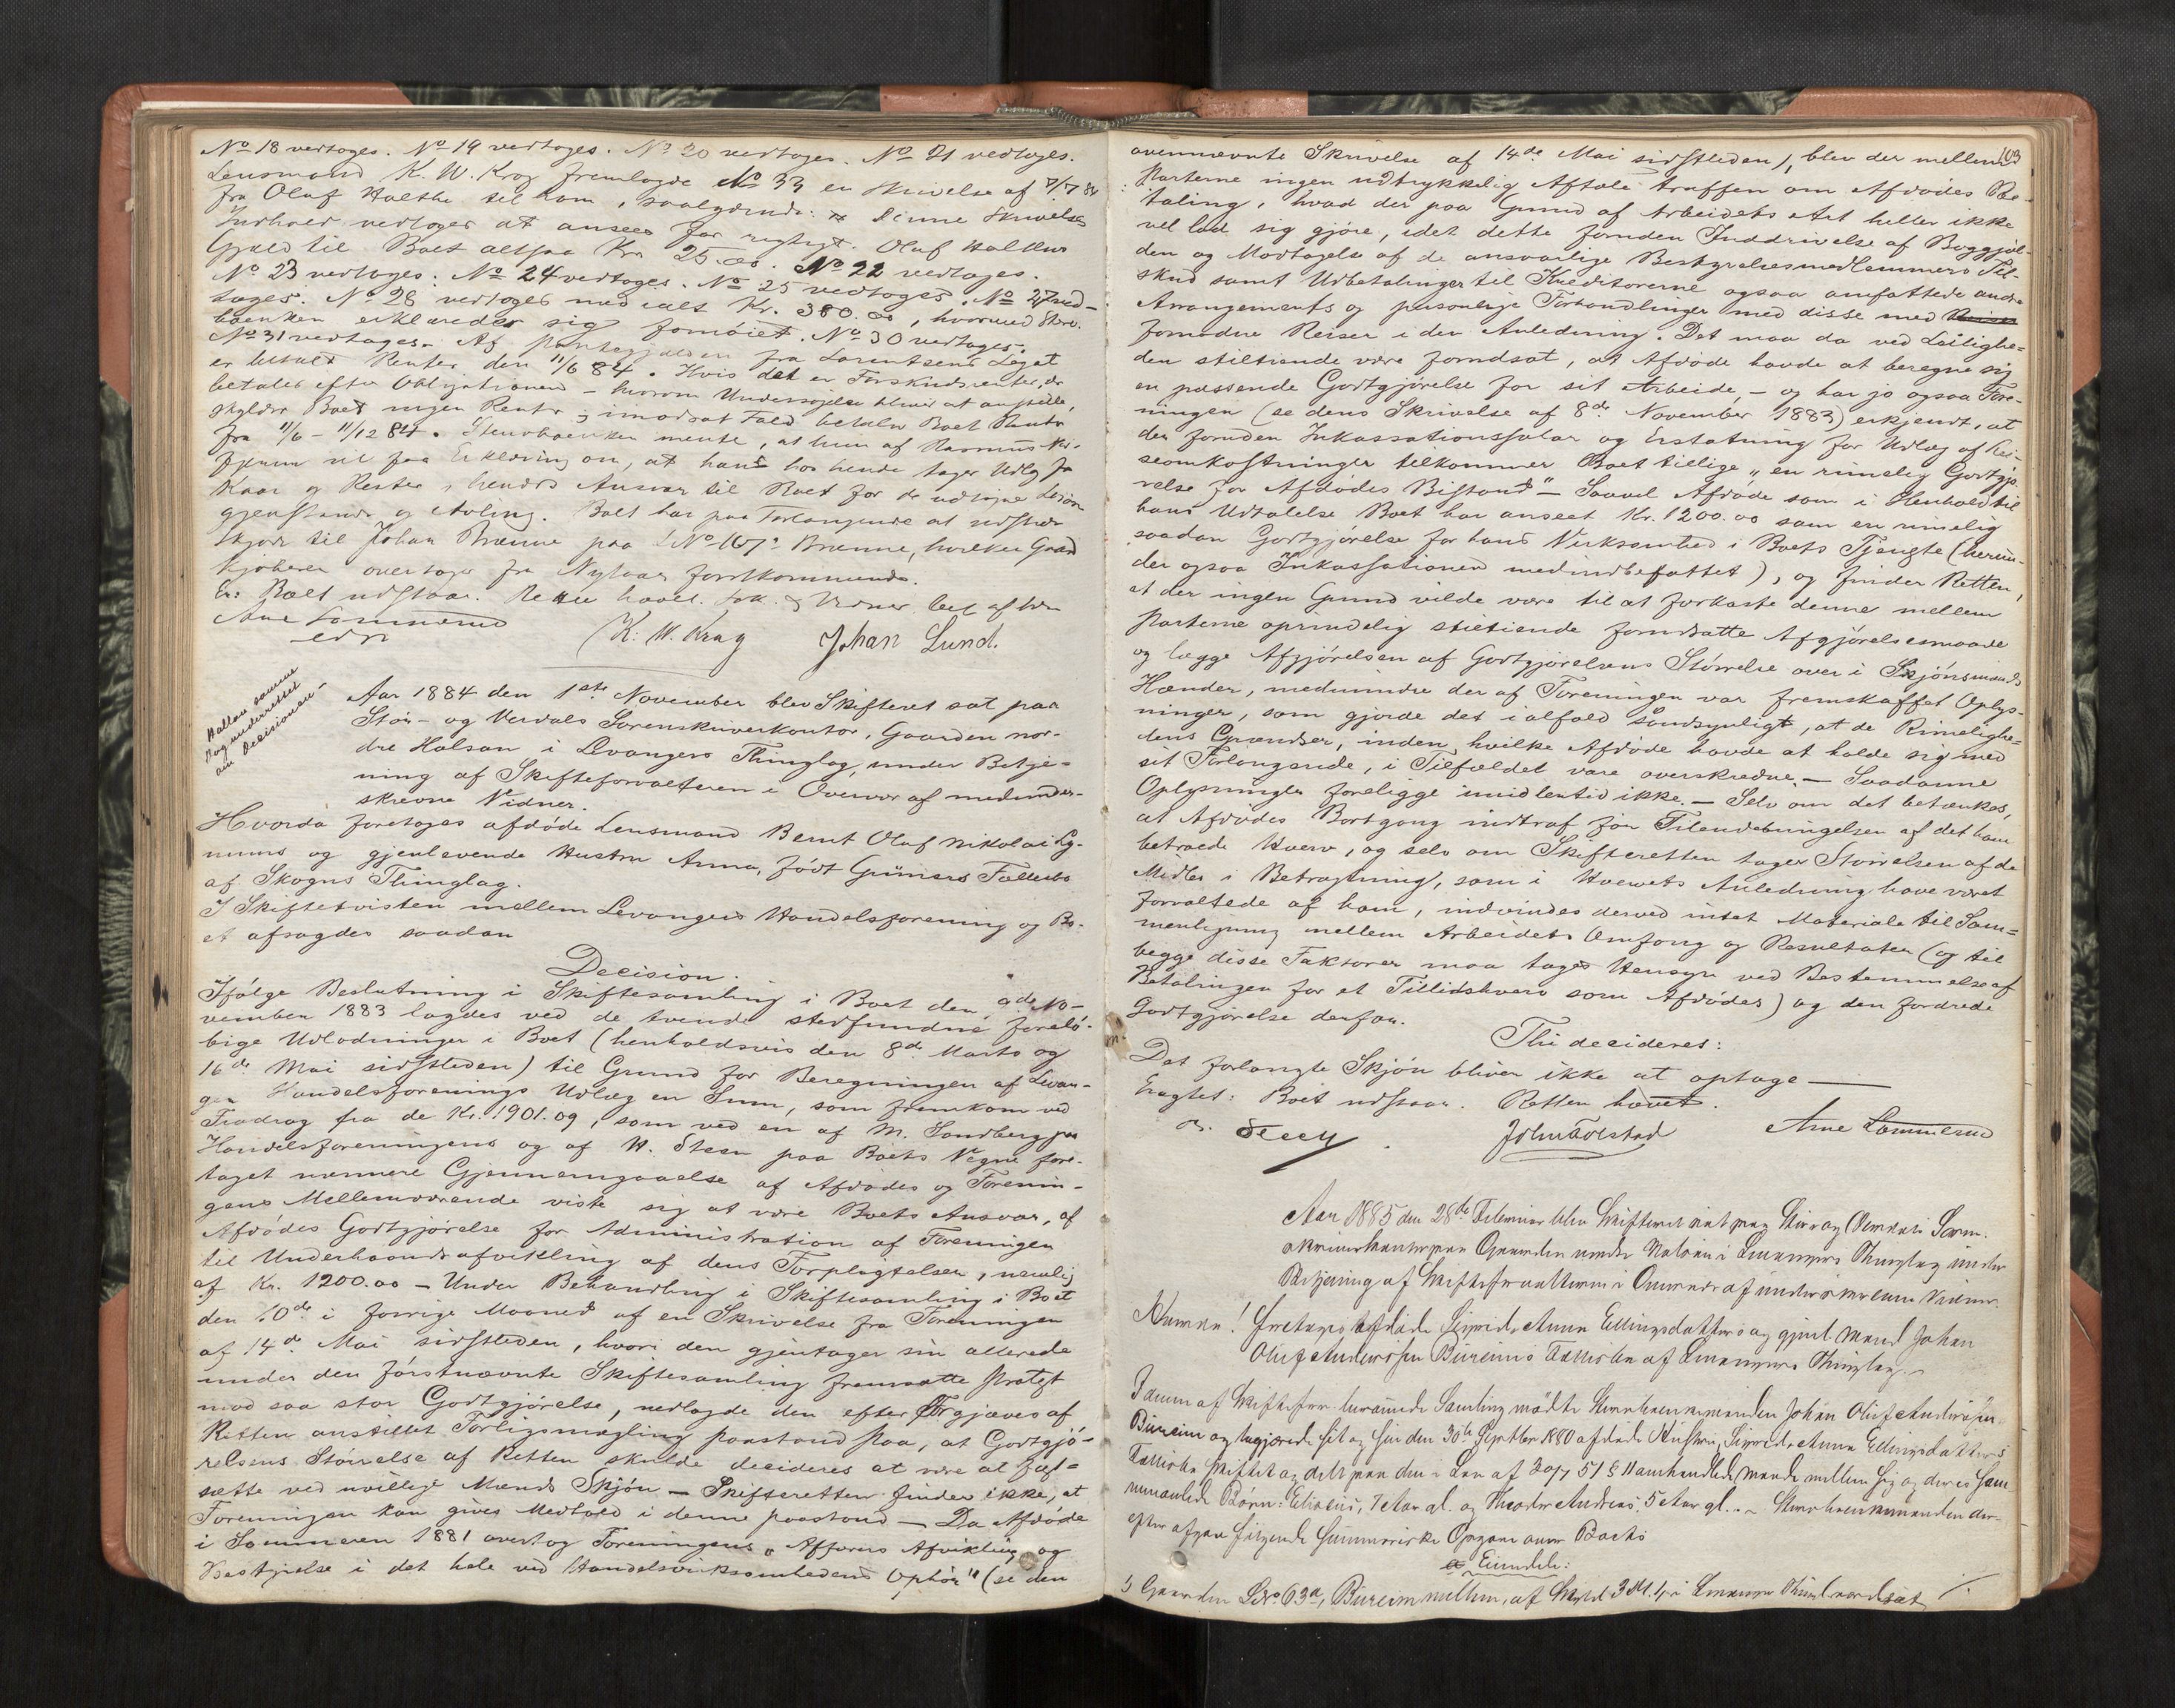 No 18 vedtoges. No 19 vedtoges. No 20 vedtoges. No 21 vedtoges.
Lensmand K. W. Krog fremlagde No 33 en Skrivelse af 7/7 84
fra Olaf Halthe til ham, saalydende: Denne Skrivelses
Indhold vedtoges at ansees for rigtigt. Olaf Halthes
Gjæld til Boet altsaa Kr. 25.00. No 22 vedtoges.
No 23 vedtoges. No 24 vedtoges. No 25 vedtoges. No 27 ved-
toges. No 28 vedtoges med ialt Kr. 380.00, hvormed Stervboenken
erklærede sig fornøiet. No 30 vedtoges.
No 31 vedtoges. Af Pantegjælden fra Lorentsens Legat
er betalt Renter den 11/6 84. Hvis det er Forskudsrenter, der
betales efter Obligationen – hvorom Undersøgelse bliver at anstille,
skylder Boet ingen Rente; imodsat Fald betaler Boet Rente
fra 11/6 – 11/12 84. Stervboenken mente, at hun af Rasmus
vil faa Erklæring om, at han hos hende tager Udlæg for
Kaar og Rester, hendes Ansvar til Boet for de udtagne Løsøre-
gjenstande og Avling. Boet har paa Forlangende at udstede
Skjøde til Johan Brænne paa LNo 167a Brænne, hvilken Gaard
Kjøberen overtager fra Nytaar førstkommende.
Er: Boet udstaar. Retten hævet.
Arne Lommerud
K. W. Krog Johan Lund.
Hallan samme
Dag underrettet
om Decisionen.
Aar 1884 den 1ste November blev Skifteret sat paa
Stør- og Verdals Sorenskriverkontor, Gaarden nor-
dre Halsan i Levangers Thinglag, under Betje-
ning af Skifteforvalteren i Overvær af medunder-
skrevne Vidner.
Hvorda foretoges afdøde Lensmand Bernt Olaf Nikolai Lyng-
nums og gjenlevende Hustru Anna, født Grüners Fællesbo
af Skogns Thinglag.
I Skiftetvisten mellem Levangers Handelsforening og Bo-
et afsagdes saadan
Decision.
Ifølge Beslutning i Skiftesamling i Boet den 9de No-
vember 1883 lagdes ved de tvende stedfundne forelø-
bige Udlodninger i Boet (henholdsvis den 8de Marts og
16de Mai sidstleden) til Grund for Beregningen af Levan-
ger Handelsforenings Udlæg en Sum, som fremkom ved
Fradrag fra de Kr. 1901.09, som ved en af M. Sandberg paa
Handelsforeningens og af H. Steen paa Boets Vegne fore-
taget nærmere Gjennemgaaelse af Afdødes og Forenin-
gens Mellemværende viste sig at være Boets Ansvar, af
Afdødes Godtgjørelse for Administration af Foreningen
til Underhaandsafvikling af dens Forpligtelser, nemlig
af Kr. 1200.00 – Under Behandling i Skiftesamling i Boet
den 10de i forrige Maaned af en Skrivelse fra Foreningen
af 14de Mai sidstleden, hvori den gjentager sin allerede
under den førstnævnte Skiftesamling fremsatte Protest
mod saa stor Godtgjørelse, nedlagde den efter forgjæves af
Retten anstillet Forligsmægling Paastand paa, at Godtgjø-
relsens Størrelse af Retten skulde decideres at være at fast-
sætte ved uvillige Mænds Skjøn – Skifteretten finder ikke, at
Foreningen kan gives Medhold i denne Paastand – Da Afdøde
i Sommeren 1881 overtog Foreningens „Affærers Afvikling og
Bestyrelse i det hele ved Handelsvirksomhedens Ophør" (se den
103
ovennævnte Skrivelse af 14de Mai sidstleden), blev der mellem
Parterne ingen udtrykkelig Aftale truffen om Afdødes Be-
taling, hvad der paa Grund af Arbeidets Art heller ikke
vel lod sig gjøre, idet dette foruden Inddrivelse af Boggjæl-
den og Modtagelse af de ansvarlige Bestyrelsesmedlemmers Til-
skud samt Udbetalinger til Kreditorerne ogsaa omfattede andre
Arrangements og personlige Forhandlinger med disse med
fornødne Reiser i den Anledning. Det maa da ved Leilighe-
den stiltiende være forudsat, at Afdøde havde at beregne sig
en passende Godtgjørelse for sit Arbeide, – og har jo ogsaa Fore-
ningen (se dens Skrivelse af 8de November 1883) erkjendt, at
der foruden Inkassationssalær og Erstatning for Udlæg af Rei-
seomkostninger tilkommer Boet tillige „en rimelig Godtgjø-
relse for Afdødes Bistand" – Saavel Afdøde som i Henhold til
hans Udtalelse Boet har anseet Kr. 1200.00 som en rimelig
saadan Godtgjørelse for hans Virksomhed i Boets Tjeneste (herun-
der ogsaa Inkassationen medindbefattet), og finder Retten,
at der ingen Grund vilde være til at forkaste denne mellem
Parterne oprindelig stiltiende forudsatte Afgjørelsesmaade
og lægge Afgjørelsen af Godtgjørelsens Størrelse over i Skjønsmænds
Hænder, medmindre der af Foreningen var fremskaffet Oplys-
ninger, som gjorde det ialfald sandsynligt, at de Rimelighe-
dens Grændser, inden hvilke Afdøde havde at holde sig med
sit Forlangende, i Tilfældet vare overskredne. – Saadanne
Oplysninger foreligge imidlertid ikke. – Selv om det betænkes,
at Afdødes Bortgang indtraf før Tilendebringelsen af det ham
betroede Hverv, og selv om Skifteretten tager Størrelsen af de
Midler i Betragtning, som i Hvervets Anledning have været
forvaltede af ham, indvindes derved intet Materiale til Sam-
menligning mellem Arbeidets Omfang og Resultater (og til
begge disse Faktorer maa tages Hensyn ved Bestemmelse af
Betalingen for et Tillidshverv som Afdødes) og den fordrede
Godtgjørelse derfor.
Thi decideres:
Det forlangte Skjøn bliver ikke at optage
Eragtet: Boet udstaar. Retten hævet.
John Tolstad Arne Lommerud
Aar 1885 den 28de Februar blev Skifteret sat paa Stør og Verdals Soren-
skriverkontor paa Gaarden nordre Halsan i Levangers Thinglag under
Betjening af Skifteforvalteren i Overvær af underskrevne Vidner.
Hvorda! foretoges afdøde Sigrid Anna Ellingsdatters og gjenl. Mand Johan
Oluf Andersen Bureims Fællesbo af Levangers Thinglag.
I denne af Skifteforv. berammede Samling mødte Stervboenkemanden Johan Oluf Andersen
Bureim og begjærede sit og sin den 30te Septbr 1880 afdøde Hustru, Sigrid Anna Ellingsdatters
Fællesbo skiftet og delt paa den i Lov af 30/7 51 § 11 omhandlede Maade mellem sig og deres sam-
menavlede Børn: Edvard, 7 Aar gl. og Theodor Andreas 5 Aar gl. – Stervboenkemanden der-
efter afgav følgende summariske Opgave over Boets
a Eiendele:
1) Gaarden LNo 63a, Bureim mellem, af Skyld 3 i Levanger Thingl. værdsat